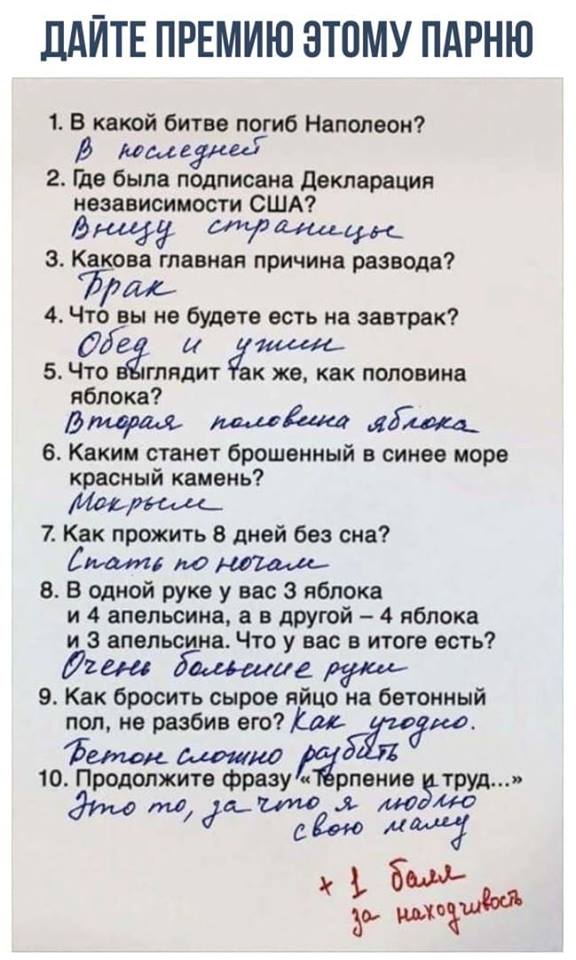 ДАЙТЕ ПРЕМИЮ ЭТОМУ ПАРНЮ
1. В какой битве погиб Наполеон?
В последней
2. Где была подписана Декларация
независимости США?
Внизу страницы
3. Какова главная причина развода?
Брак
4. Что вы не будете есть на завтрак?
Обед и ужин
5. Что выглядит так же, как половина
яблока?
Вторая половина яблока
6. Каким станет брошенный в синее море
красный камень?
Мокрым
7. Как прожить 8 дней без сна?
Спать по ночам
8. В одной руке у вас 3 яблока
и 4 апельсина, а в другой – 4 яблока
и 3 апельсина. Что у вас в итоге есть?
Очень большие руки
9. Как бросить сырое яйцо на бетонный
пол, не разбив его? Как угодно.
Бетон сложно разбить
10. Продолжите фразу «Терпение и труд...»
Это то, за что я люблю
свою маму
+ 1 балл
за находчивость